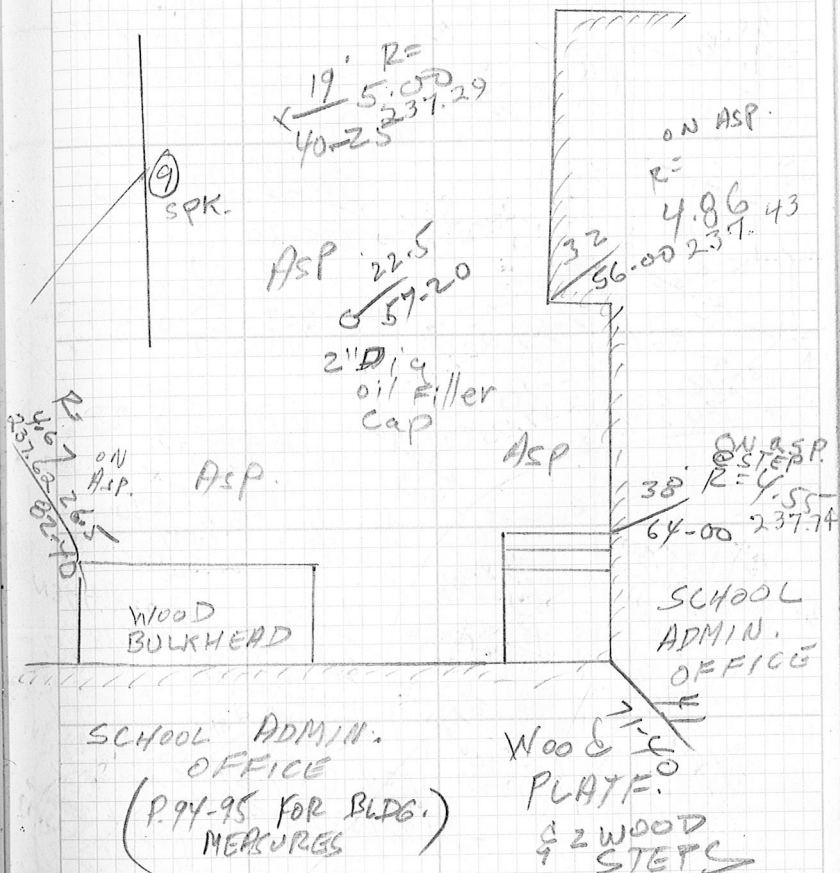 19' R=
5.00
237.29
40-25
ON ASP.
R=
4.86
237.43
32
56.00
9
SPK.
ASP
22.5
57-20
2" Dia
oil Filler
Cap
R=
4.67
237.62
ON
Asp.
26.5
82-40
Asp.
Asp
ON asp.
@ STEP
38' R=4.55
64-00 237.74
WOOD
BULKHEAD
SCHOOL
ADMIN.
OFFICE
SCHOOL ADMIN.
OFFICE
(P.94-95 FOR BLDG.
MEASURES)
71-40
Wood
PLATF.
& 2 WOOD
STEPS